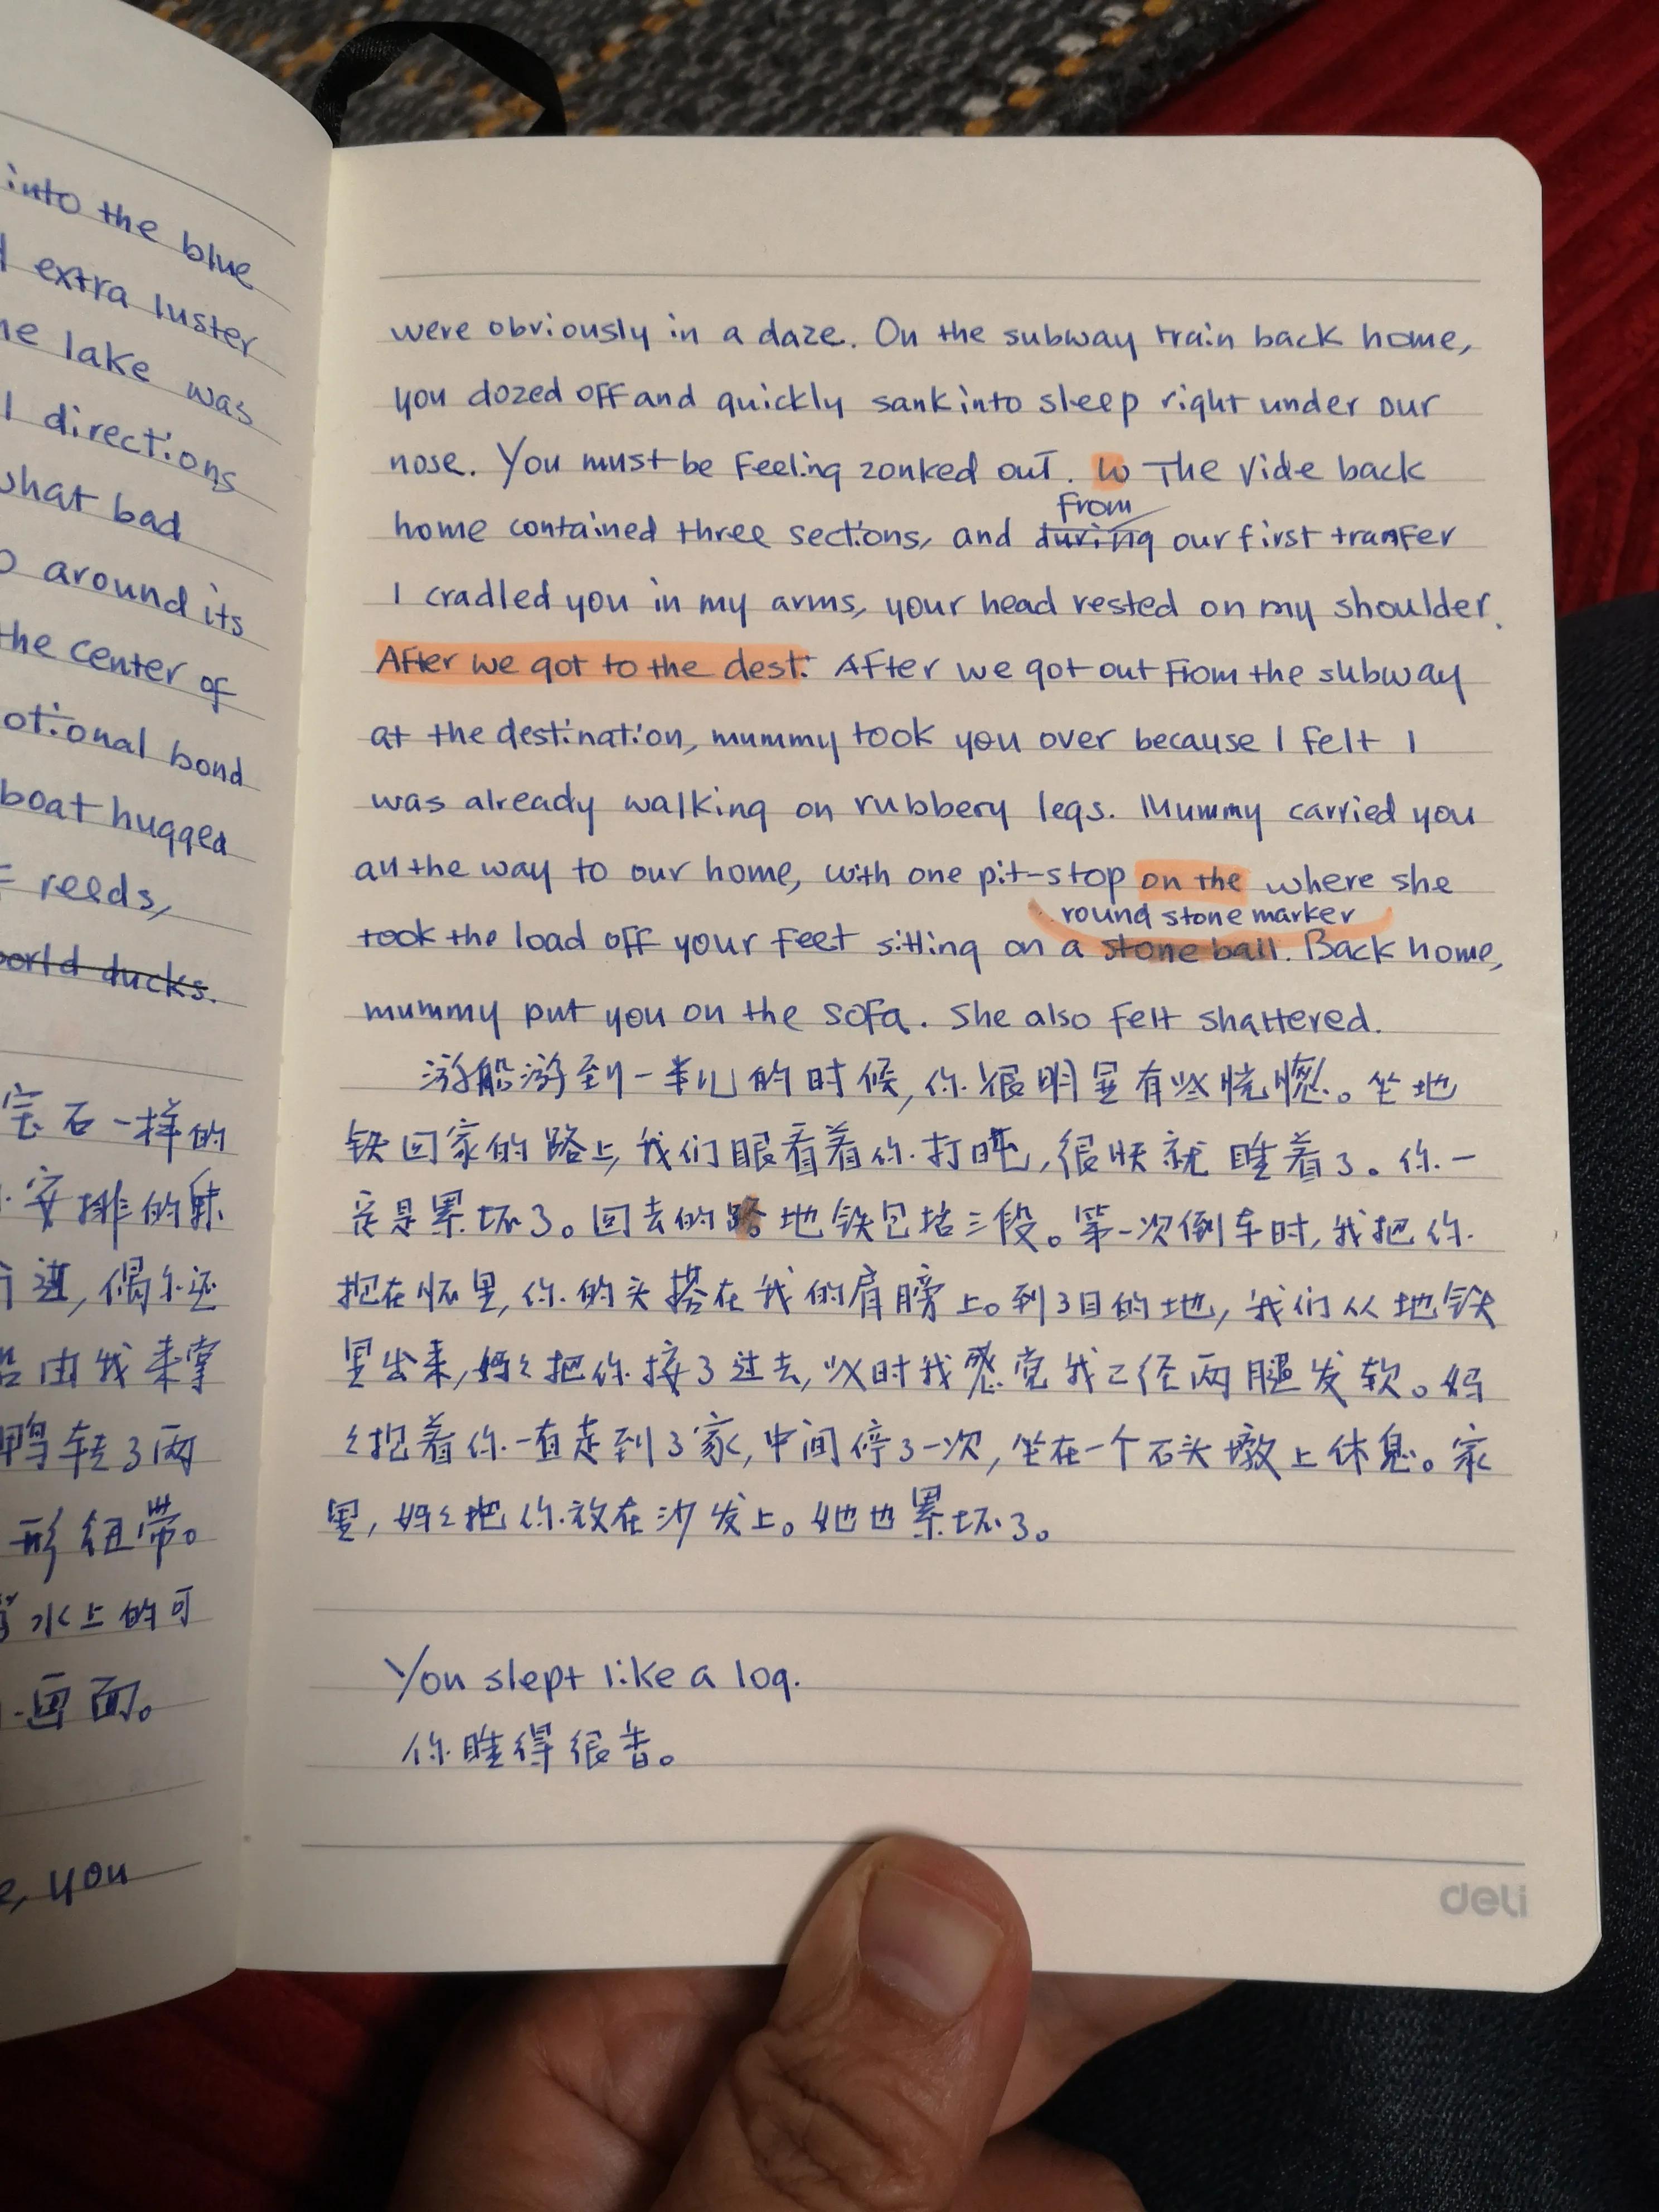 into the blue
extra luster
lake was
directions
what bad
around its
the center of
otional bond
boat hugged
reeds,
world ducks.
宝石一样的
安排的
进,偶尔还
由我来掌
鸭转了两
形纽带。
水上的可
画面。
you
were obviously in a daze. On the subway train back home,
you dozed off and quickly sank into sleep right under our
nose. You must be feeling zonked out. w The ride back
from
home contained three sections, and during our first tranfer
I cradled you in my arms, your head rested on my shoulder.
After we got to the dest. After we got out from the subway
at the destination, mummy took you over because I felt I
was already walking on rubbery legs. Mummy carried you
all the way to our home, with one pit-stop on the where she
round stone marker
took the load off your feet sitting on a stone ball. Back home,
mummy put you on the sofa. She also felt shattered.
游船游到一半儿的时候,你很明显有些恍惚。坐地
铁回家的路上,我们眼看着你打盹,很快就睡着了。你一
定是累坏了。回去的路地铁包括三段。第一次倒车时,我把你
抱在怀里,你的头搭在我的肩膀上。到了目的地,我们从地铁
里出来,妈々把你接了过去,这时我感觉我已经两腿发软。妈
々抱着你一直走到了家,中间停了一次,坐在一个石头墩上休息。家
里,妈々把你放在沙发上。她也累坏了。
You slept like a log.
你睡得很香。
deli